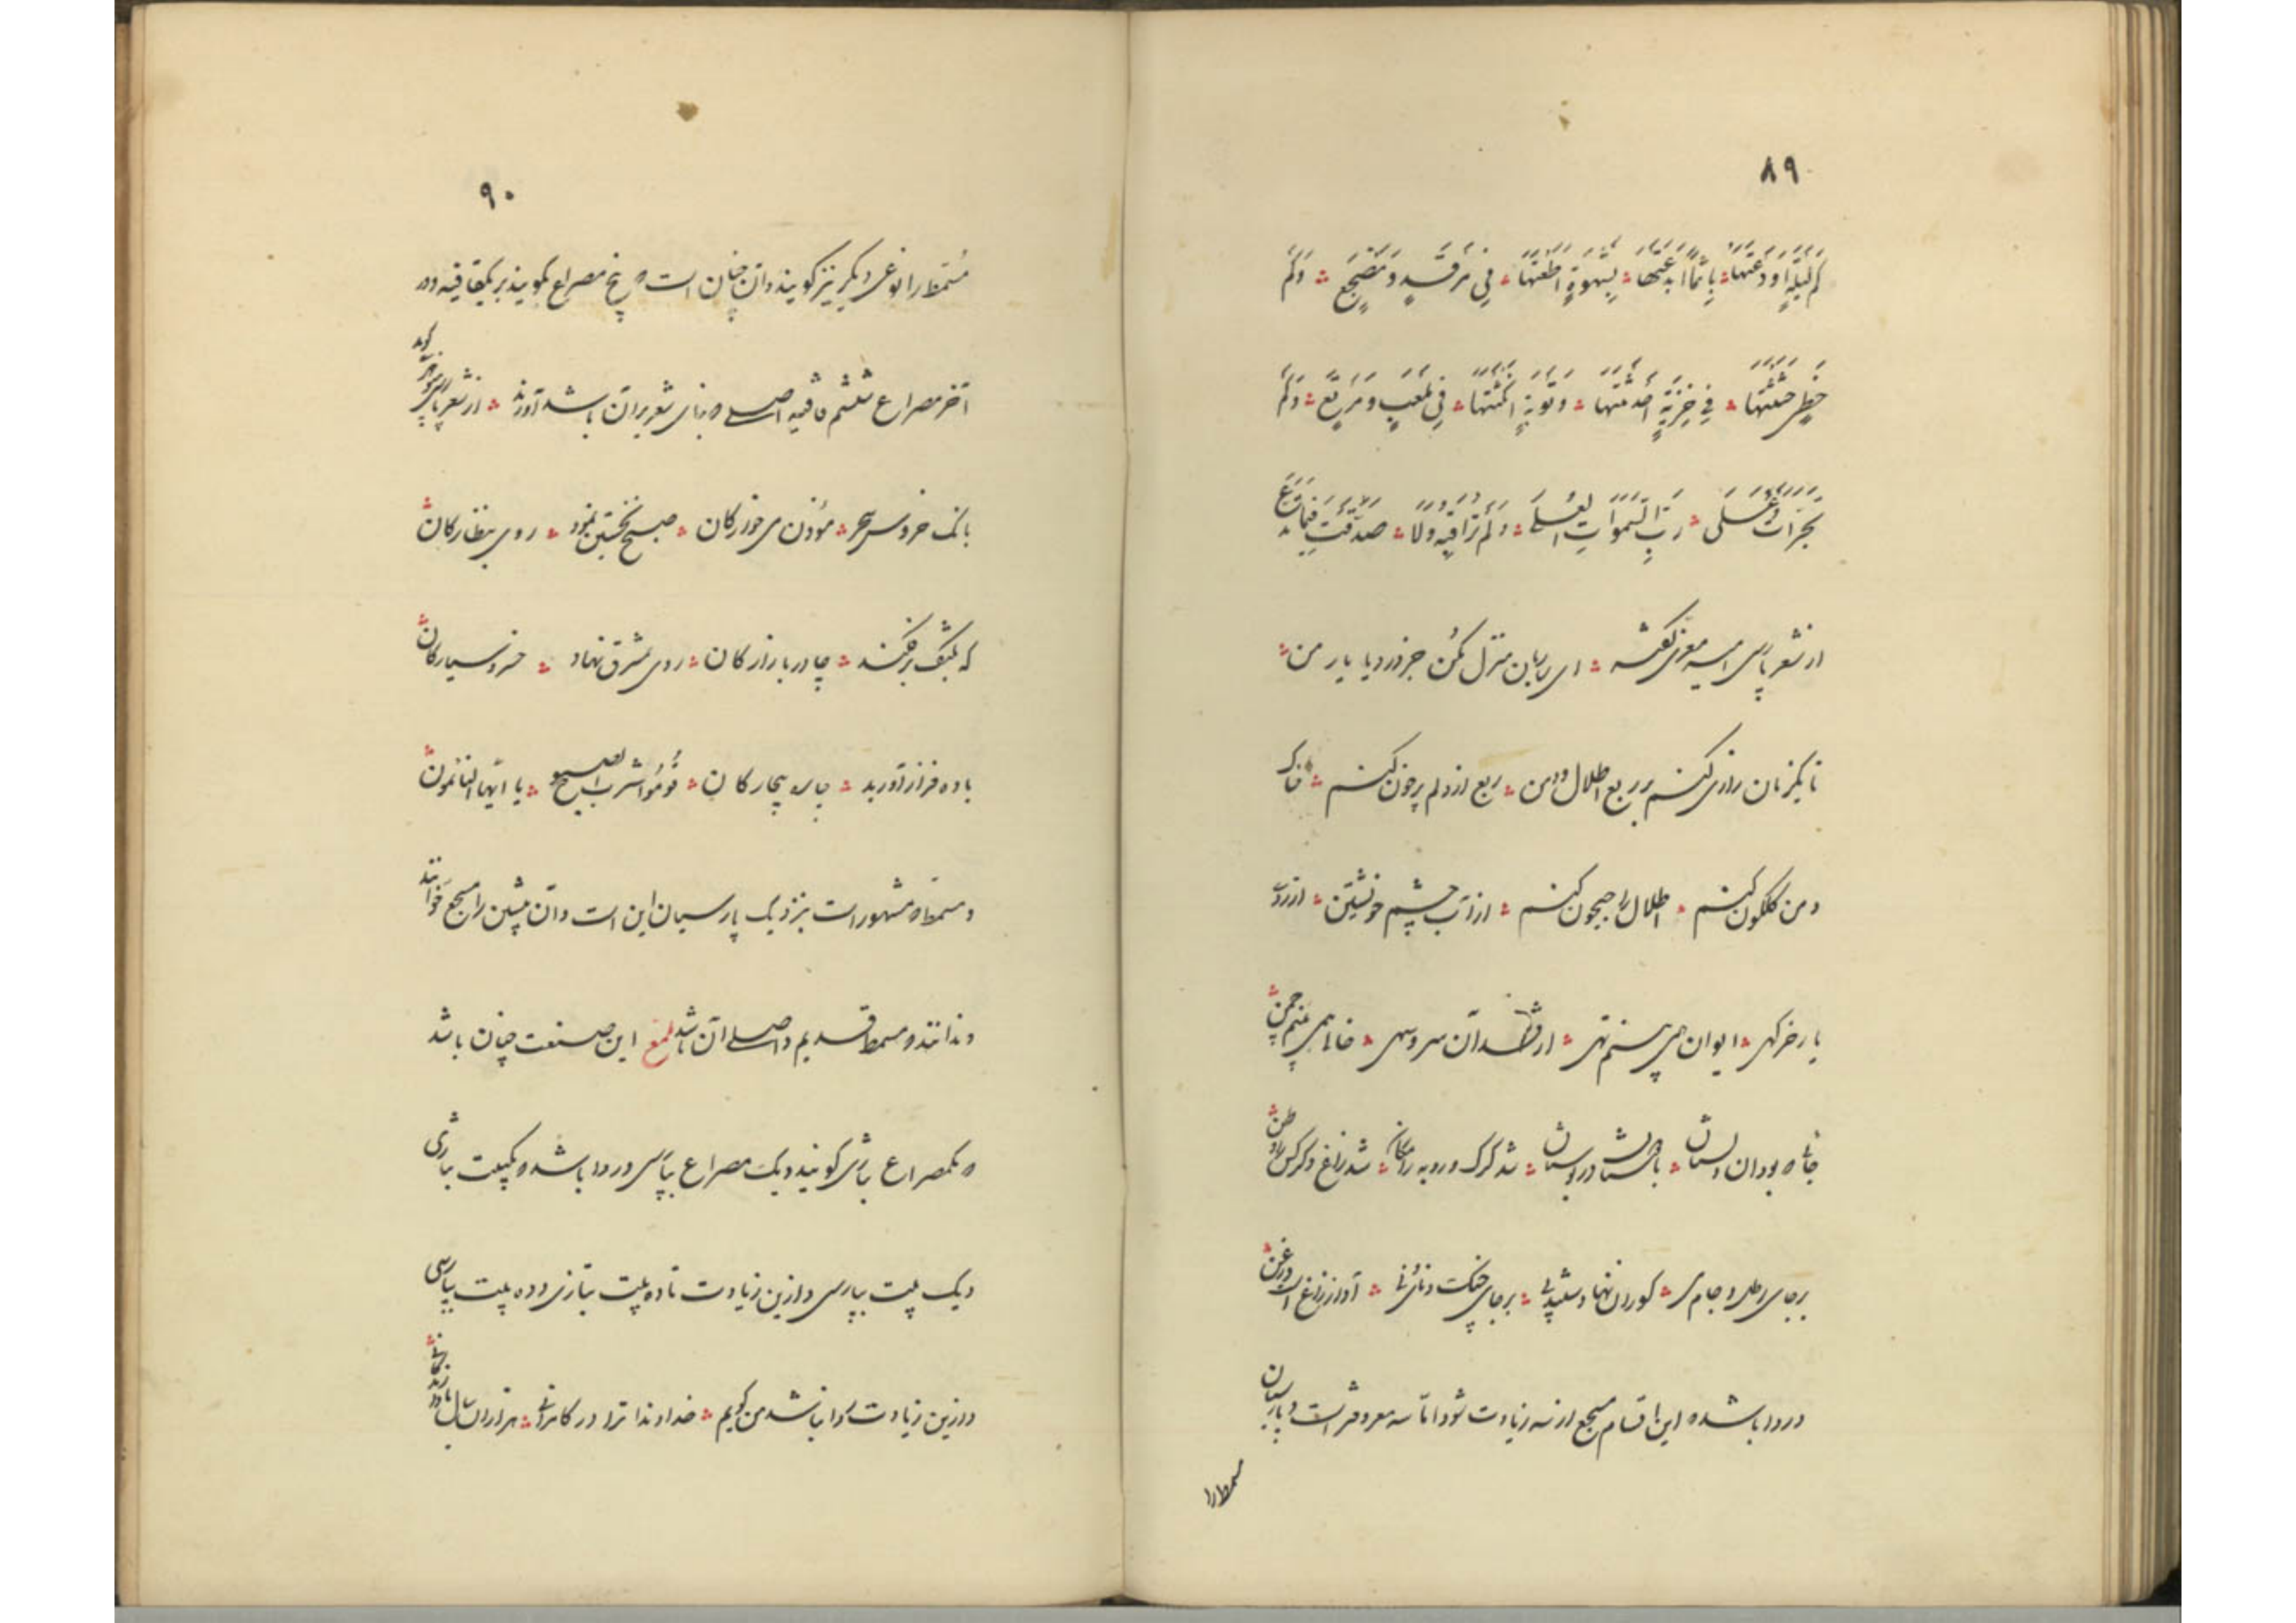 ۸۹
كَم لَيلَةٍ اَودَعتَها ؞ مَآثِمًا اَبدَعتَها ؞ لِشَهوَةٍ اَطَعتَها ؞ فِي مَرقَدٍ وَمَضجَعٍ ؞ وَكَم
خُطىً حَثَثتَها ؞ فِي خِزيَةٍ اَحدَثتَها ؞ وَتَوبَةٍ نَكَثتَها ؞ فِي مَلعَبٍ وَمَرتَعٍ ؞ وَكَم
تَجَرَّأتَ عَلَى ؞ رَبِّ السَّمَوَاتِ العُلَى ؞ وَلَم تُرَاقِبهُ وَلَا ؞ صَدَقتَ فِيمَا تَدَّعِي
از شعر پارسی امیر معزی گفته ؞ ای ساربان منزل مکن جز در دیار یار من ؞
تا یکزمان زاری کنم بر ربع و اطلال و دمن ؞ ربع از دلم پر خون کنم ؞ خاک
دمن گلگون کنم ؞ اطلال را جیحون کنم ؞ از آب چشم خویشتن ؞ از روی
یار خرگهی ؞ ایوان همی بینم تهی ؞ از قد آن سرو سهی ؞ خالی همی بینم چمن ؞
جائی که بود آن دلستان ؞ با دوستان در بوستان ؞ شد گرگ و روبه را مکان ؞ شد زاغ و کرکس را وطن ؞
بر جای رطل و جام می ؞ گوران نهادستند پی ؞ بر جای چنگ و نای و نی ؞ آواز زاغ است و زغن ؞
و روا باشد که این اقسام مسجع از سه زیادت شود اما سه معروفتر است و پارسیان
مسمط را
۹۰
مُسَمّط را نوعی دیگر نیز گویند و آن چنان است که پنج مصراع بگویند بر یکقافیه و در
آخر مصراع ششم قافیه اصلی که بنای شعر بر آن باشد آورند ؞ از شعر پارسی منوچهری گوید
بانک خروس سحر ؞ مؤذن می خوارگان ؞ صبح نخستین نمود ؞ روی بنظارگان ؞
که بکتف برفکند ؞ چادر بازارگان ؞ روی بمشرق نهاد ؞ خسرو سیارگان ؞
باده فراز آورید ؞ چاره بیچارگان ؞ قُومُوا شُرب الصبوح ؞ یا ایّها النائمون ؞
و مسمط که مشهور است بنزدیک پارسیان این است و آن پیشین را مسجع خوانند
و دانند و مسمط قدیم و اصلی آن باشد ملمع این صنعت چنان باشد
که یکمصراع بتازی گویند و یک مصراع بپارسی و روا باشد که یکبیت بتازی
و یک بیت بپارسی و ازین زیادت تا ده بیت بتازی و ده بیت بپارسی
و ازین زیادت روا نباشد من گویم ؞ خداوندا ترا در کامرانی ؞ هزاران سال بادا زندگانی ؞